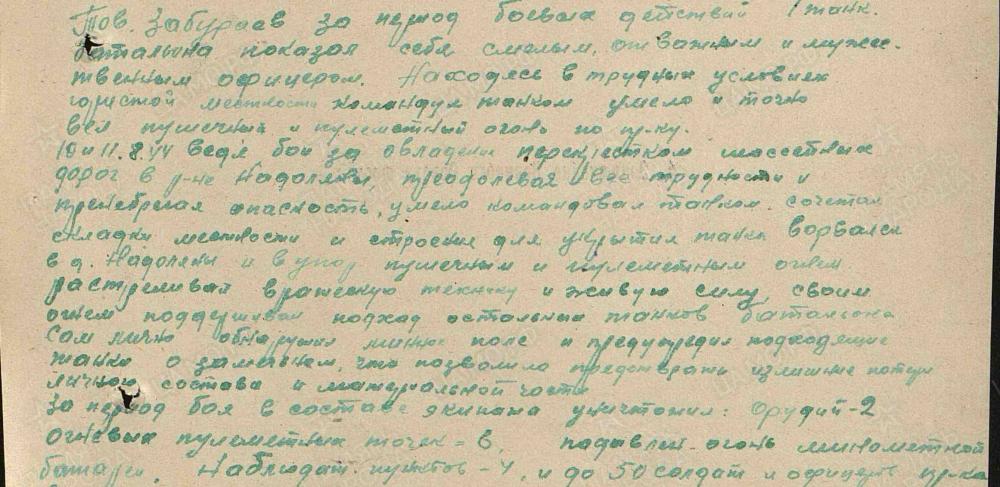 Тов. Забураев за период боевых действий 1 танк.
батальона показал себя смелым, отважным и мужес-
твенным офицером. Находясь в трудных условиях
гористой местности командуя танком умело и точно
вел пушечный и пулеметный огонь по пр-ку.
10 и 11.8.44 ведя бои за овладение перекрестком шоссейных
дорог в р-не Надоляны, преодолевая все трудности и
пренебрегая опасность, умело командовал танком. сочетая
складки местности и строения для укрытия танка ворвался
в д. Надоляны и в упор пушечным и пулеметным огнем
растреливал вражескую технику и живую силу, своим
огнем поддерживал подход остальных танков батальона
Сам лично обнаружил минное поле и предупредил подходящие
танки о замеченом, что позволило предотвратить излишние потери
личного состава и материальной части
За период боя в составе экипажа уничтожил: Орудий-2
огневых пулеметных точек-6, подавлен огонь минометной
батареи, Наблюдат. пунктов-4, и до 50 солдат и офицеров пр-ка